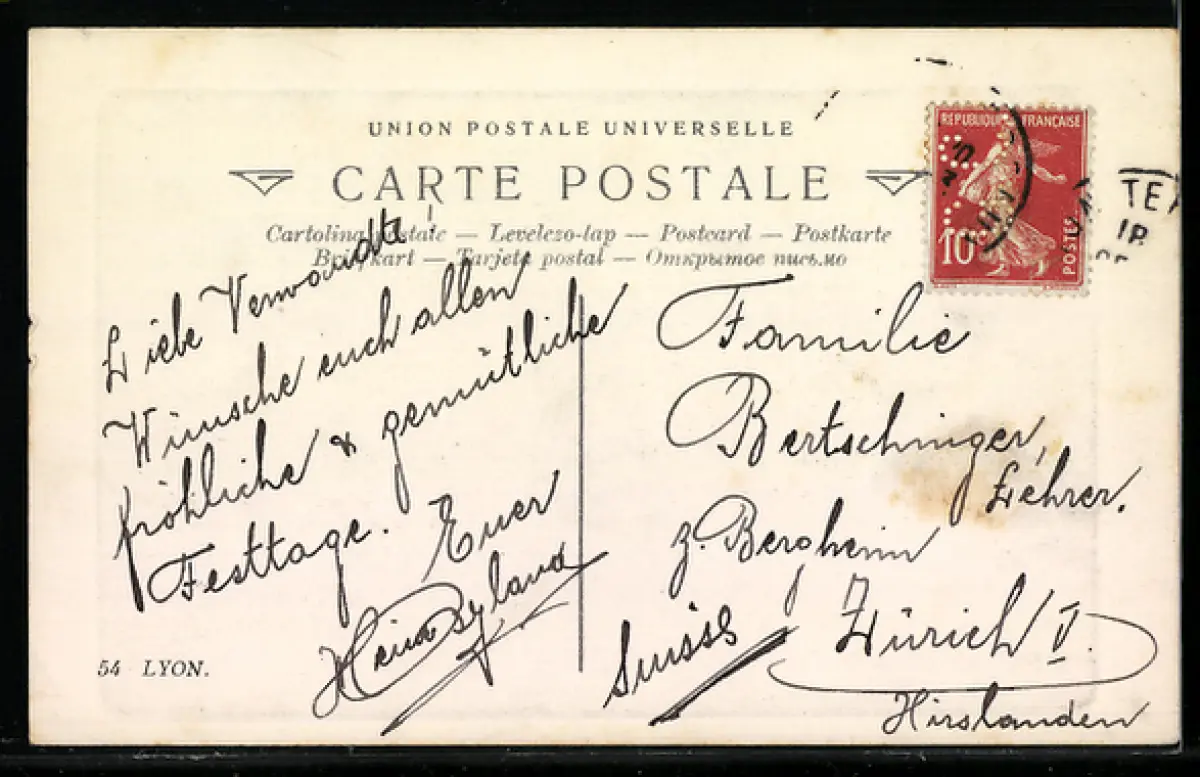 UNION POSTALE UNIVERSELLE
CARTE POSTALE
Cartolina postale — Levelezo-lap — Postcard — Postkarte
Briefkart — Tarjeta postal — Открытое письмо
RÉPUBLIQUE FRANÇAISE
10c
POSTES
Liebe Verwandte!
Wünsche euch allen
fröhliche & gemütliche
Festtage. Euer
54 LYON.
Familie
Bertschinger,
Lehrer.
z. Bergheim
Zürich V.
Suisse
Hirslanden